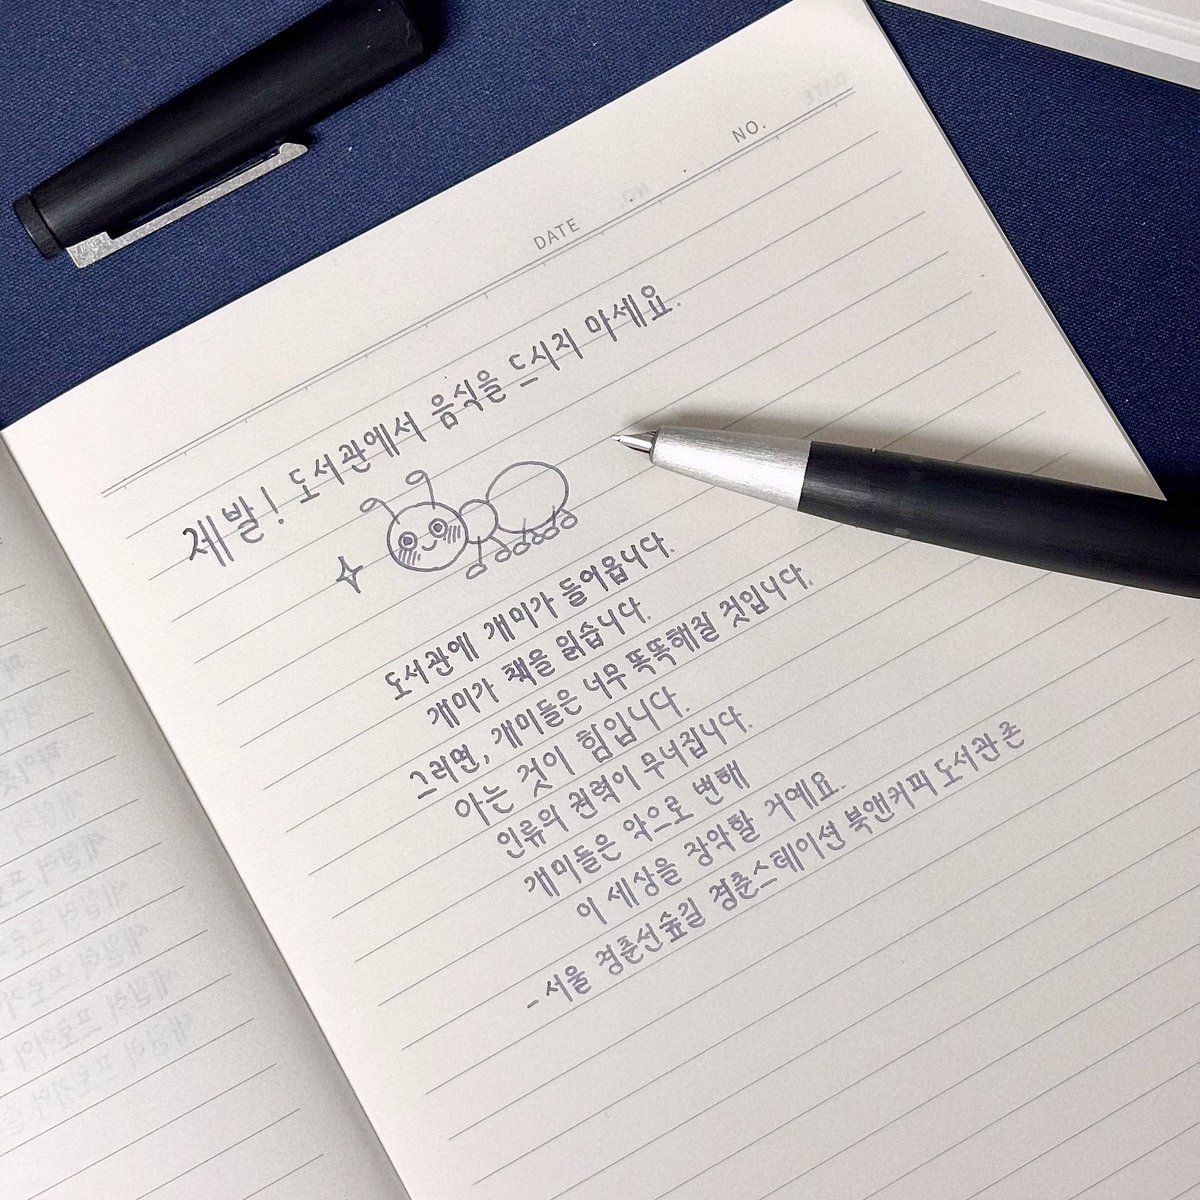 NO.
DATE
제발! 도서관에서 음식을 드시지 마세요.
도서관에 개미가 들어옵니다.
개미가 책을 읽습니다.
그러면, 개미들은 너무 똑똑해질 것입니다.
아는 것이 힘입니다.
인류의 권력이 무너집니다.
개미들은 악으로 변해
이 세상을 장악할 거예요.
- 서울 경춘선숲길 경춘스테이션 북앤커피 도서관 존